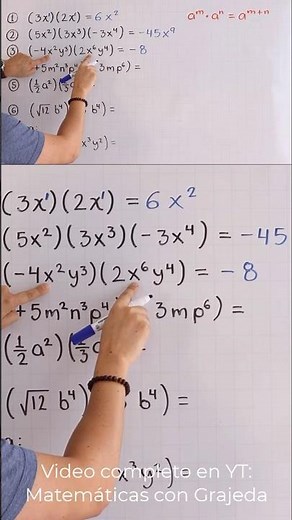 ① (3x¹)(2x¹) = 6x²
aᵐ · aⁿ = aᵐ⁺ⁿ
② (5x²)(3x³)(-3x⁴) = -45x⁹
③ (-4x²y³)(2x⁶y⁴) = -8
+5m²n³p⁴ 3mp⁶) =
⑤ (½a²)(
⑥ (√12 b⁴) b⁴) =
x³y²) =
(3x¹)(2x¹) = 6x²
(5x²)(3x³)(-3x⁴) = -45
(-4x²y³)(2x⁶y⁴) = -8
+5m²n³p⁴ 3mp⁶) =
(½a²)(
(√12 b⁴) b⁴) =
x³y²) =
Video completo en YT:
Matemáticas con Grajeda